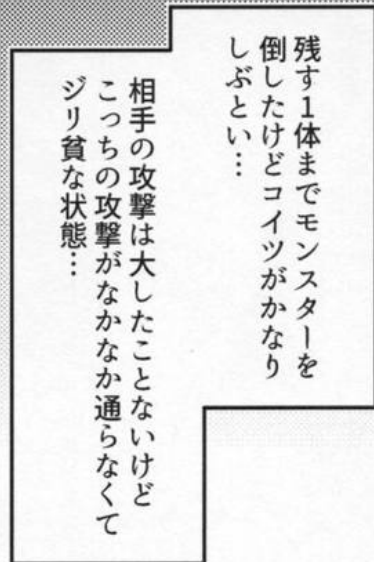 残す1体までモンスターを
倒したけどコイツがかなり
しぶとい…
相手の攻撃は大したことないけど
こっちの攻撃がなかなか通らなくて
ジリ貧な状態…